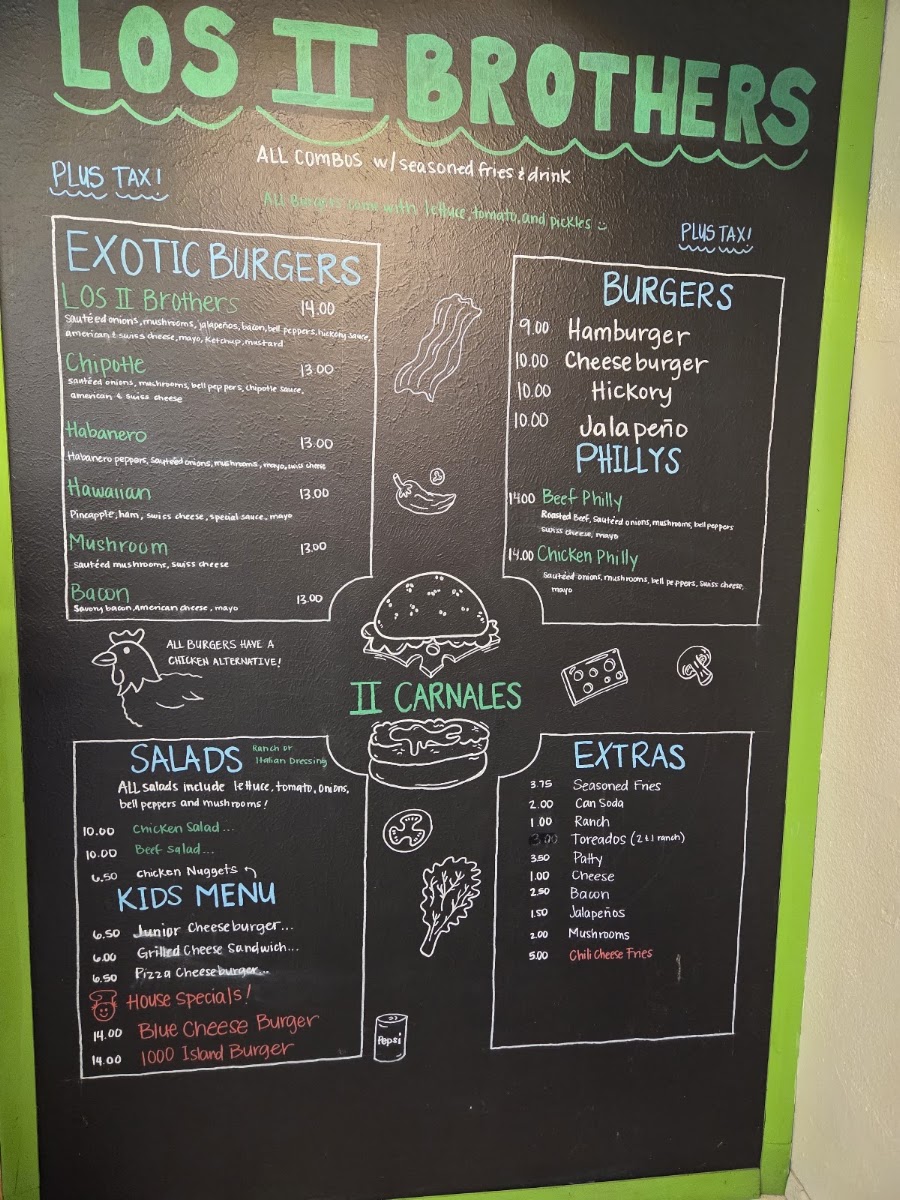 LOS II BROTHERS
ALL COMBOS w/ seasoned fries & drink
PLUS TAX!
All Burgers come with lettuce, tomato, and pickles
PLUS TAX!
EXOTIC BURGERS
LOS II Brothers 14.00
sautéed onions, mushrooms, jalapeños, bacon, bell peppers, hickory sauce,
american & swiss cheese, mayo, ketchup, mustard
Chipotle 13.00
sautéed onions, mushrooms, bell peppers, chipotle sauce,
american & swiss cheese
Habanero 13.00
Habanero peppers, sautéed onions, mushrooms, mayo, swiss cheese
Hawaiian 13.00
Pineapple, ham, swiss cheese, special sauce, mayo
Mushroom 13.00
sautéed mushrooms, swiss cheese
Bacon 13.00
Savory bacon, American cheese, mayo
BURGERS
9.00 Hamburger
10.00 Cheeseburger
10.00 Hickory
10.00 Jalapeño
PHILLYS
14.00 Beef Philly
Roasted Beef, Sautéed onions, mushrooms, bell peppers
swiss cheese, mayo
14.00 Chicken Philly
Sautéed onions, mushrooms, bell peppers, swiss cheese,
mayo
ALL BURGERS HAVE A
CHICKEN ALTERNATIVE!
II CARNALES
SALADS
Ranch or
Italian Dressing
ALL salads include lettuce, tomato, onions,
bell peppers and mushrooms!
10.00 Chicken Salad...
10.00 Beef Salad...
6.50 chicken Nuggets
KIDS MENU
6.50 Junior Cheeseburger...
6.00 Grilled Cheese Sandwich...
6.50 Pizza Cheeseburger...
House Specials!
14.00 Blue Cheese Burger
14.00 1000 Island Burger
Pepsi
EXTRAS
3.75 Seasoned Fries
2.00 Can Soda
1.00 Ranch
Toreados (2 & 1 ranch)
3.50 Patty
1.00 Cheese
2.50 Bacon
1.50 Jalapeños
2.00 Mushrooms
5.00 Chili Cheese Fries